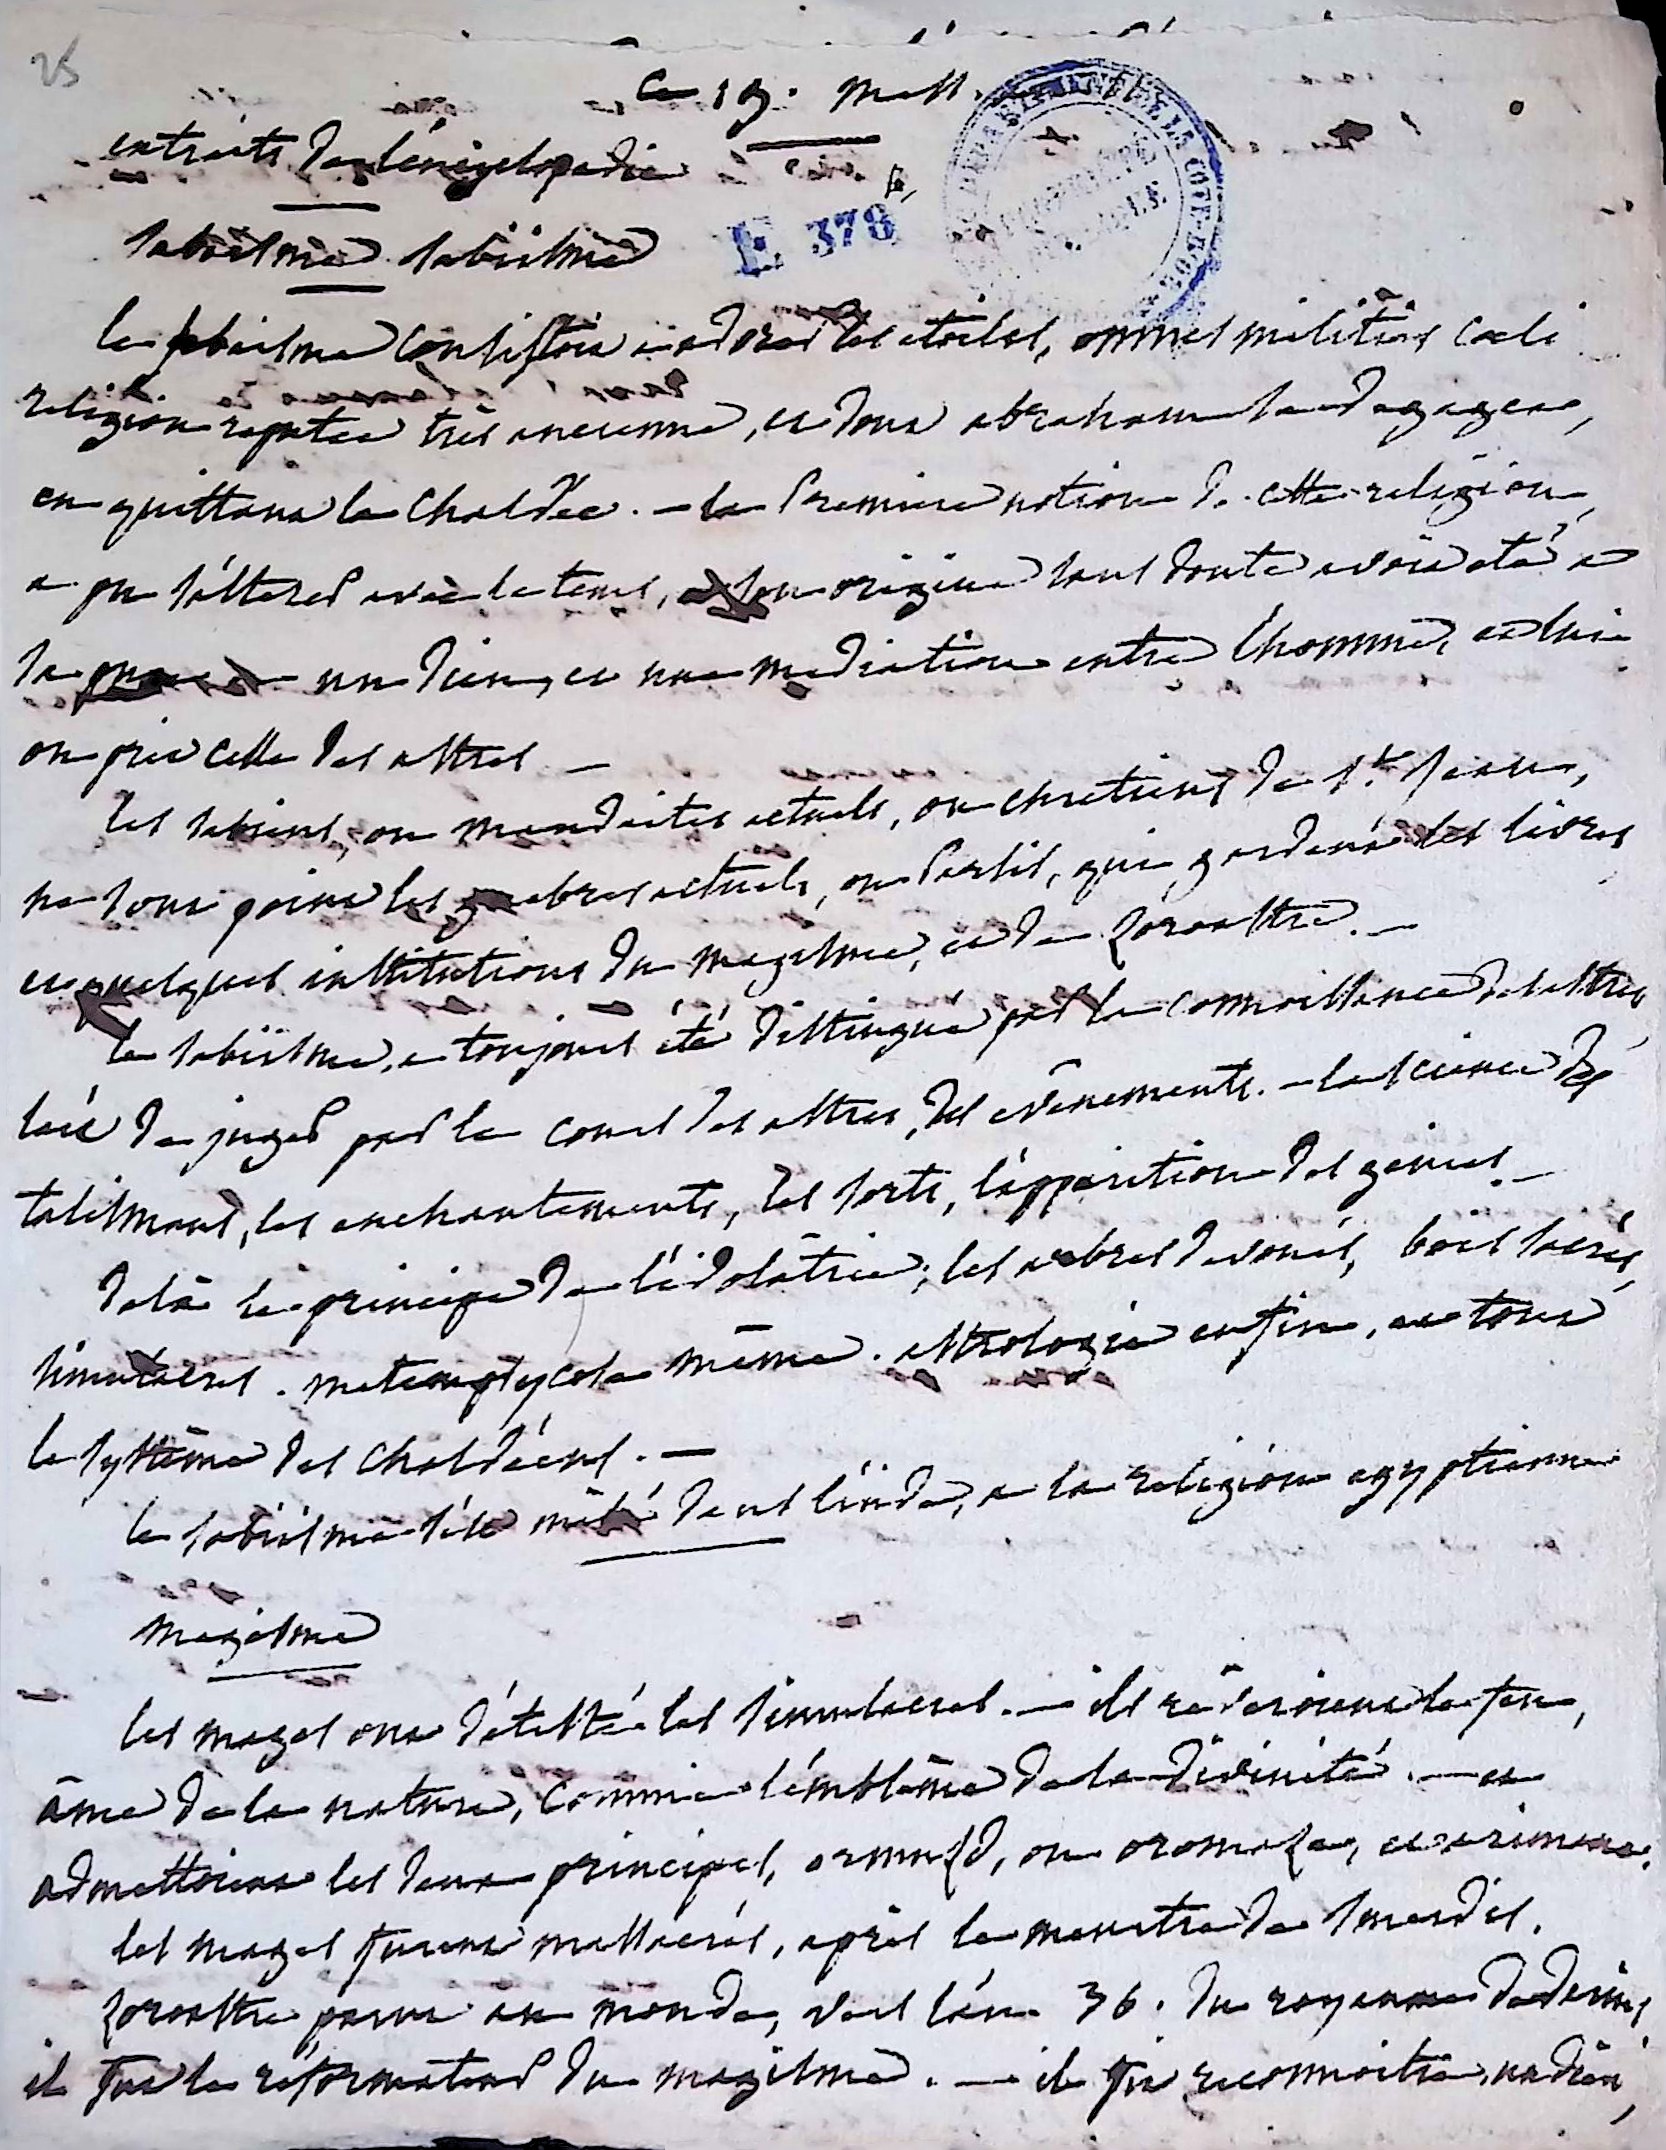 25
Ce 19. mess.
extraits de l'encyclopedie
E 378
DEPARTEMENT DE LA COTE-D'OR
sabaisme sabiisme
le sabaisme consistoit a adorer les etoiles, omnes militias coeli
religion reputée très ancienne, et dont abraham se degagea,
en quittant la Chaldée. - la premiere notion de cette religion,
a pu s'altérer avec le tems, son origine sans doute avoit eté a
un dieu, et une mediation entre l'homme, et lui
on prit celle des astres -
les sabiens, ou mandaites actuels, ou chretiens de st. Jean,
ne sont point les guebres actuels, ou Parsis, qui gardent les livres
et quelques institutions du magisme, et de Zoroastre. -
le sabiisme, a toujours été distingué par la connoissance des astres,
l'art de juger par le cours des astres, des evenements. - la science des
talismans, les enchantements, les sorts, l'apparition des genies. -
delà le principe de l'idolâtrie; les arbres devoués, bois sacrés,
simulacres. metempsycose même. astrologie enfin, et tout
le système des Chaldéens. -
le sabiisme s'est mêlé dans l'inde, a la religion egyptienne
magisme
les mages ont détesté les simulacres. - ils réveroient le feu,
âme de la nature, comme l'emblême de la divinité. - et
admettoient les deux principes, ormuzd, ou oromaze, et arimane.
les mages furent massacrés, après le meurtre de smerdis.
Zoroastre parut au monde, vers l'an 36. du royaume de darius
il fut le réformateur du magisme. - il fit reconnoitre, un dieu,